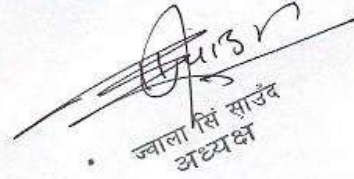 ज्वाला सिं साउँद
अध्यक्ष